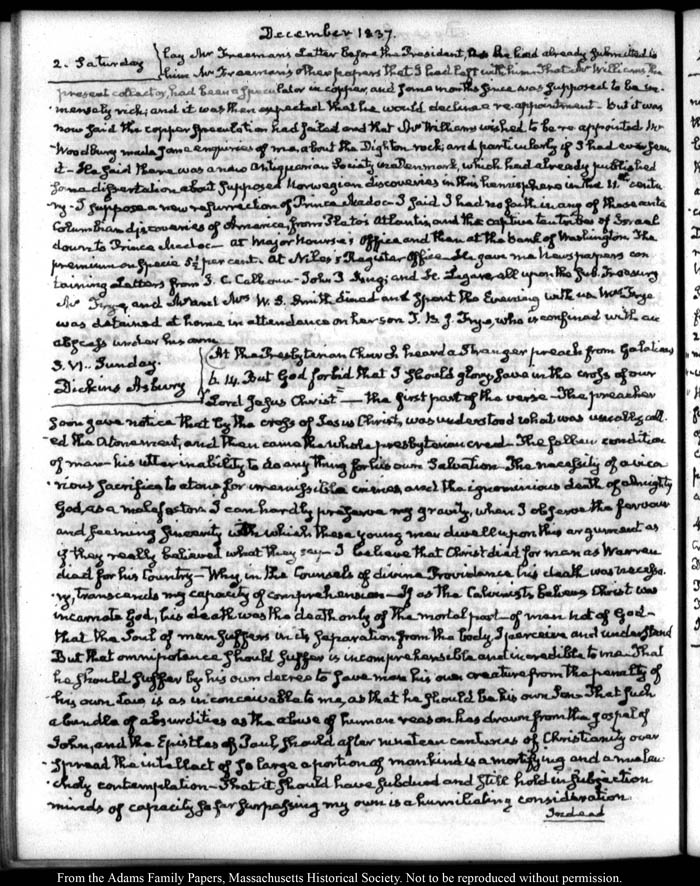 December 1837.
2. Saturday
lay Mr Freeman's Letter before the President, as he had already submitted to
him Mr Freeman's other papers that I had left with him. That Mr Williams the
present collector, had been a speculator in copper, and some months since was supposed to be im-
mensely rich; and it was then expected that he would decline a re-appointment. But it was
now said the copper speculation had failed and that Mr Williams wished to be re-appointed Mr
Woodbury made some enquiries of me, about the Dighton rock, and particularly if I had ever seen
it - He said there was a new Antiquarian Society in Denmark, which had already published
some dissertation about supposed Norwegian discoveries in this hemisphere in the 11th centu-
ry - I suppose a new resurrection of Prince Madoc - I said I had no faith in any of these ante
Columbian discoveries of America, from Plato's Atlantis, and the captive ten tribes of Israel
down to Prince Madoc - At Major Nourse's Office and then at the bank of Washington. The
premium on specie 5½ per cent. At Niles's Register Office - He gave me Newspapers con-
taining Letters from J. C. Calhoun - John J and H. Legare, all upon the Sub. Treasury
Mr Frye, and Mr and Mrs W. S. Smith dined and spent the Evening with us. Mrs Frye
was detained at home in attendance on her son T. B. J. Frye, who is confined with an
abscess under his arm.
3. VI.. Sunday.
Dickins Asbury
At the Presbyterian Church heard a Stranger preach from Galatians
6. 14. But God forbid that I should glory, save in the cross of our
Lord Jesus Christ — the first part of the verse - The preacher
soon gave notice that by the cross of Jesus Christ, was understood what was usually call-
ed the Atonement, and then came the whole presbyterian creed - The fallen condition
of man - his utter inability to do any thing for his own Salvation - The necessity of a vica-
rious sacrifice to atone for unremissible crimes, and the ignominious death of almighty
God, as a malefactor. I can hardly preserve my gravity, when I observe the fervour
and seeming sincerity with which these young men dwell upon this argument as
if they really believed what they say - I believe that Christ died for man as Warren
died for his Country - Why, in the Counsels of divine Providence his death was necessa-
ry, transcends my capacity of comprehension - If as the Calvinists believe Christ was
incarnate God, his death was the death only of the mortal part - of man not of God -
that the Soul of man suffers in its separation from the body I perceive and understand
But that omnipotence should suffer is incomprehensible and incredible to me - That
he should suffer by his own decree to save man his own creature from the penalty of
his own Law is as inconceivable to me, as that he should be his own Son - That such
a bundle of absurdities as the abuse of human reason has drawn from the gospel of
John, and the Epistles of Paul, should after nineteen centuries of Christianity over-
spread the intellect of so large a portion of mankind is a mortifying and a melan-
choly contemplation - That it should have subdued and still hold in subjection
minds of capacity so far surpassing my own is a humiliating consideration
Indeed
From the Adams Family Papers, Massachusetts Historical Society. Not to be reproduced without permission.